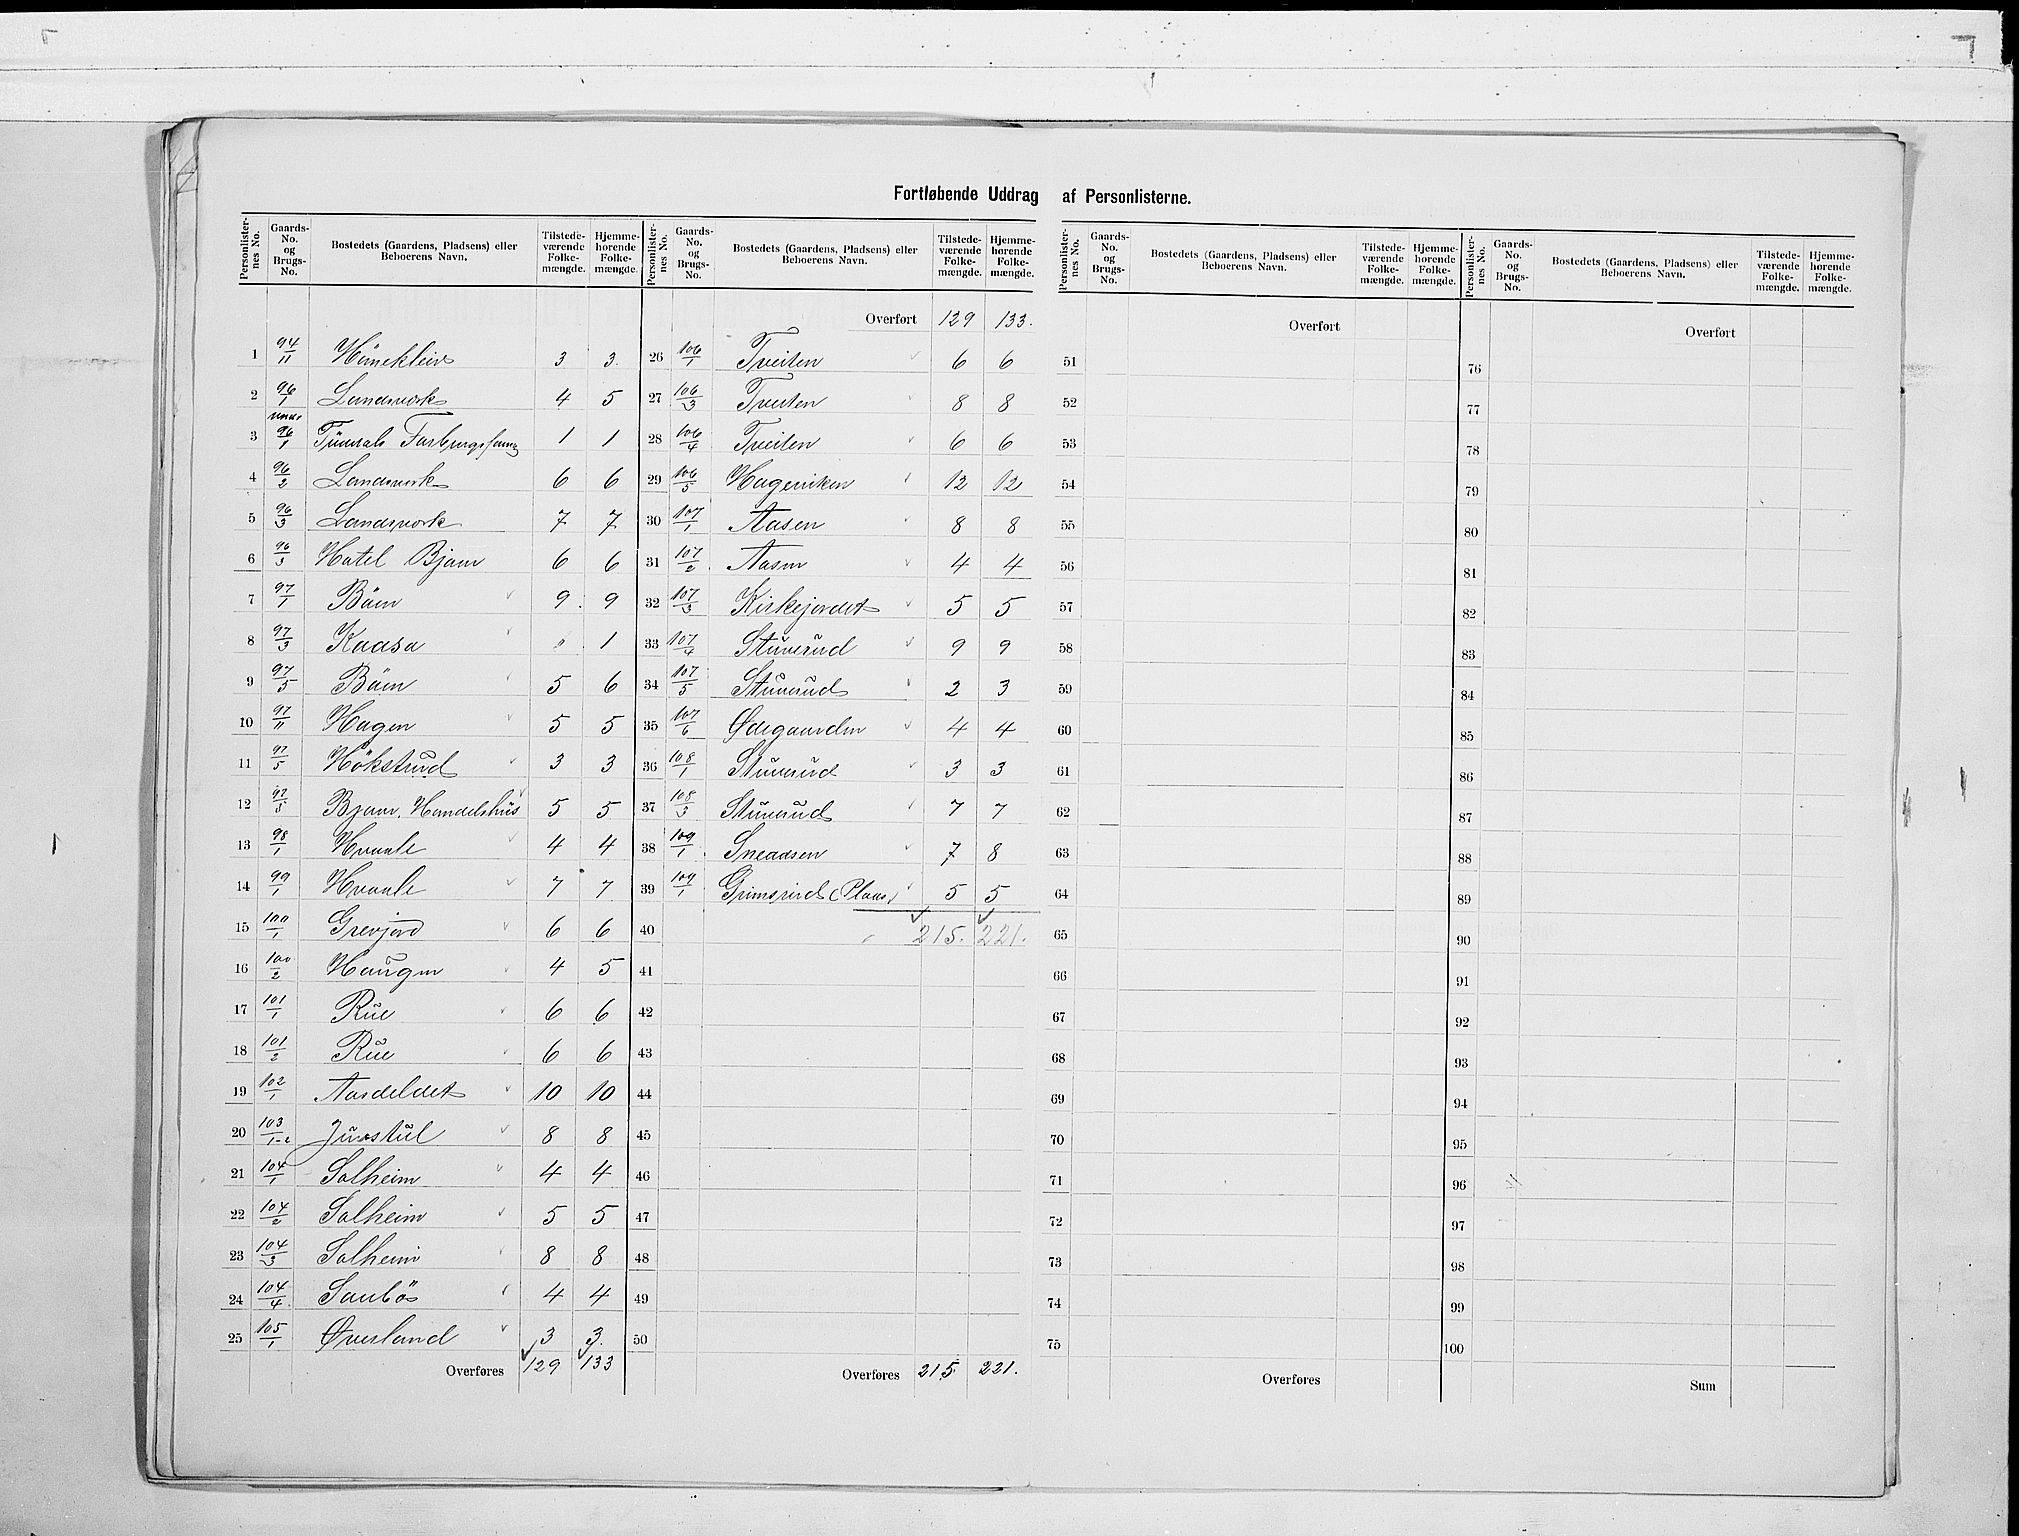 Fortløbende Uddrag af Personlisterne.
Personlisternes No. Gaards-No. og Brugs-No. Bostedets (Gaardens, Pladsens) eller Beboerens Navn. Tilstedeværende Folkemængde. Hjemmehørende Folkemængde.
1 94/11 3 3.
2 96/1 Landsverk 4 5
3 under 96/1 1 1
4 96/2 Landsverk 6 6
5 96/3 Landsverk 7 7
6 96/3 Hotel Bjaen 6 6
7 97/1 Böen 9. 9
8 97/3 Kaasa " 1
9 97/5 Böen 5 6
10 97/11 Hagen 5 5
11 97/5 3 3
12 97/5 Handelshus 5 5
13 98/1 Hvaale 4 4
14 99/1 Hvaale 7 7
15 100/1 Grevjord 6 6
16 100/2 Haugen 4 5
17 101/1 Rue 6 6
18 101/2 Rue 6 6
19 102/1 10 10
20 103/1-2 8 8
21 104/1 Solheim 4 4
22 104/2 Solheim 5 5
23 104/3 Solheim 8 8
24 104/4 Saubös 4 4
25 105/1 Øverland 3 3.
Overføres 129 133
Personlisternes No. Gaards-No. og Brugs-No. Bostedets (Gaardens, Pladsens) eller Beboerens Navn. Tilstedeværende Folkemængde. Hjemmehørende Folkemængde.
Overført 129 133.
26 106/1 Tveiten 6 6
27 106/3 Tveiten 8 8
28 106/4 Tveiten 6 6
29 106/5 12 12
30 107/1 Aasen 8 8
31 107/2 Aasen 4 4
32 107/3 Kirkejordet 5 5
33 107/4 Stuverud 9 9
34 107/5 Stuverud 2 3
35 107/6 Ødegaarden 4 4
36 108/1 Stuverud 3 3
37 108/3 Stuverud 7 7
38 109/1 Sneaasen 7 8
39 109/1 Grimsrud (Plads) 5 5
40 215. 221.
41
42
43
44
45
46
47
48
49
50
Overføres 215 221.
Personlisternes No. Gaards-No. og Brugs-No. Bostedets (Gaardens, Pladsens) eller Beboerens Navn. Tilstedeværende Folkemængde. Hjemmehørende Folkemængde.
Overført
51
52
53
54
55
56
57
58
59
60
61
62
63
64
65
66
67
68
69
70
71
72
73
74
75
Overføres
Personlisternes No. Gaards-No. og Brugs-No. Bostedets (Gaardens, Pladsens) eller Beboerens Navn. Tilstedeværende Folkemængde. Hjemmehørende Folkemængde.
Overført
76
77
78
79
80
81
82
83
84
85
86
87
88
89
90
91
92
93
94
95
96
97
98
99
100
Sum